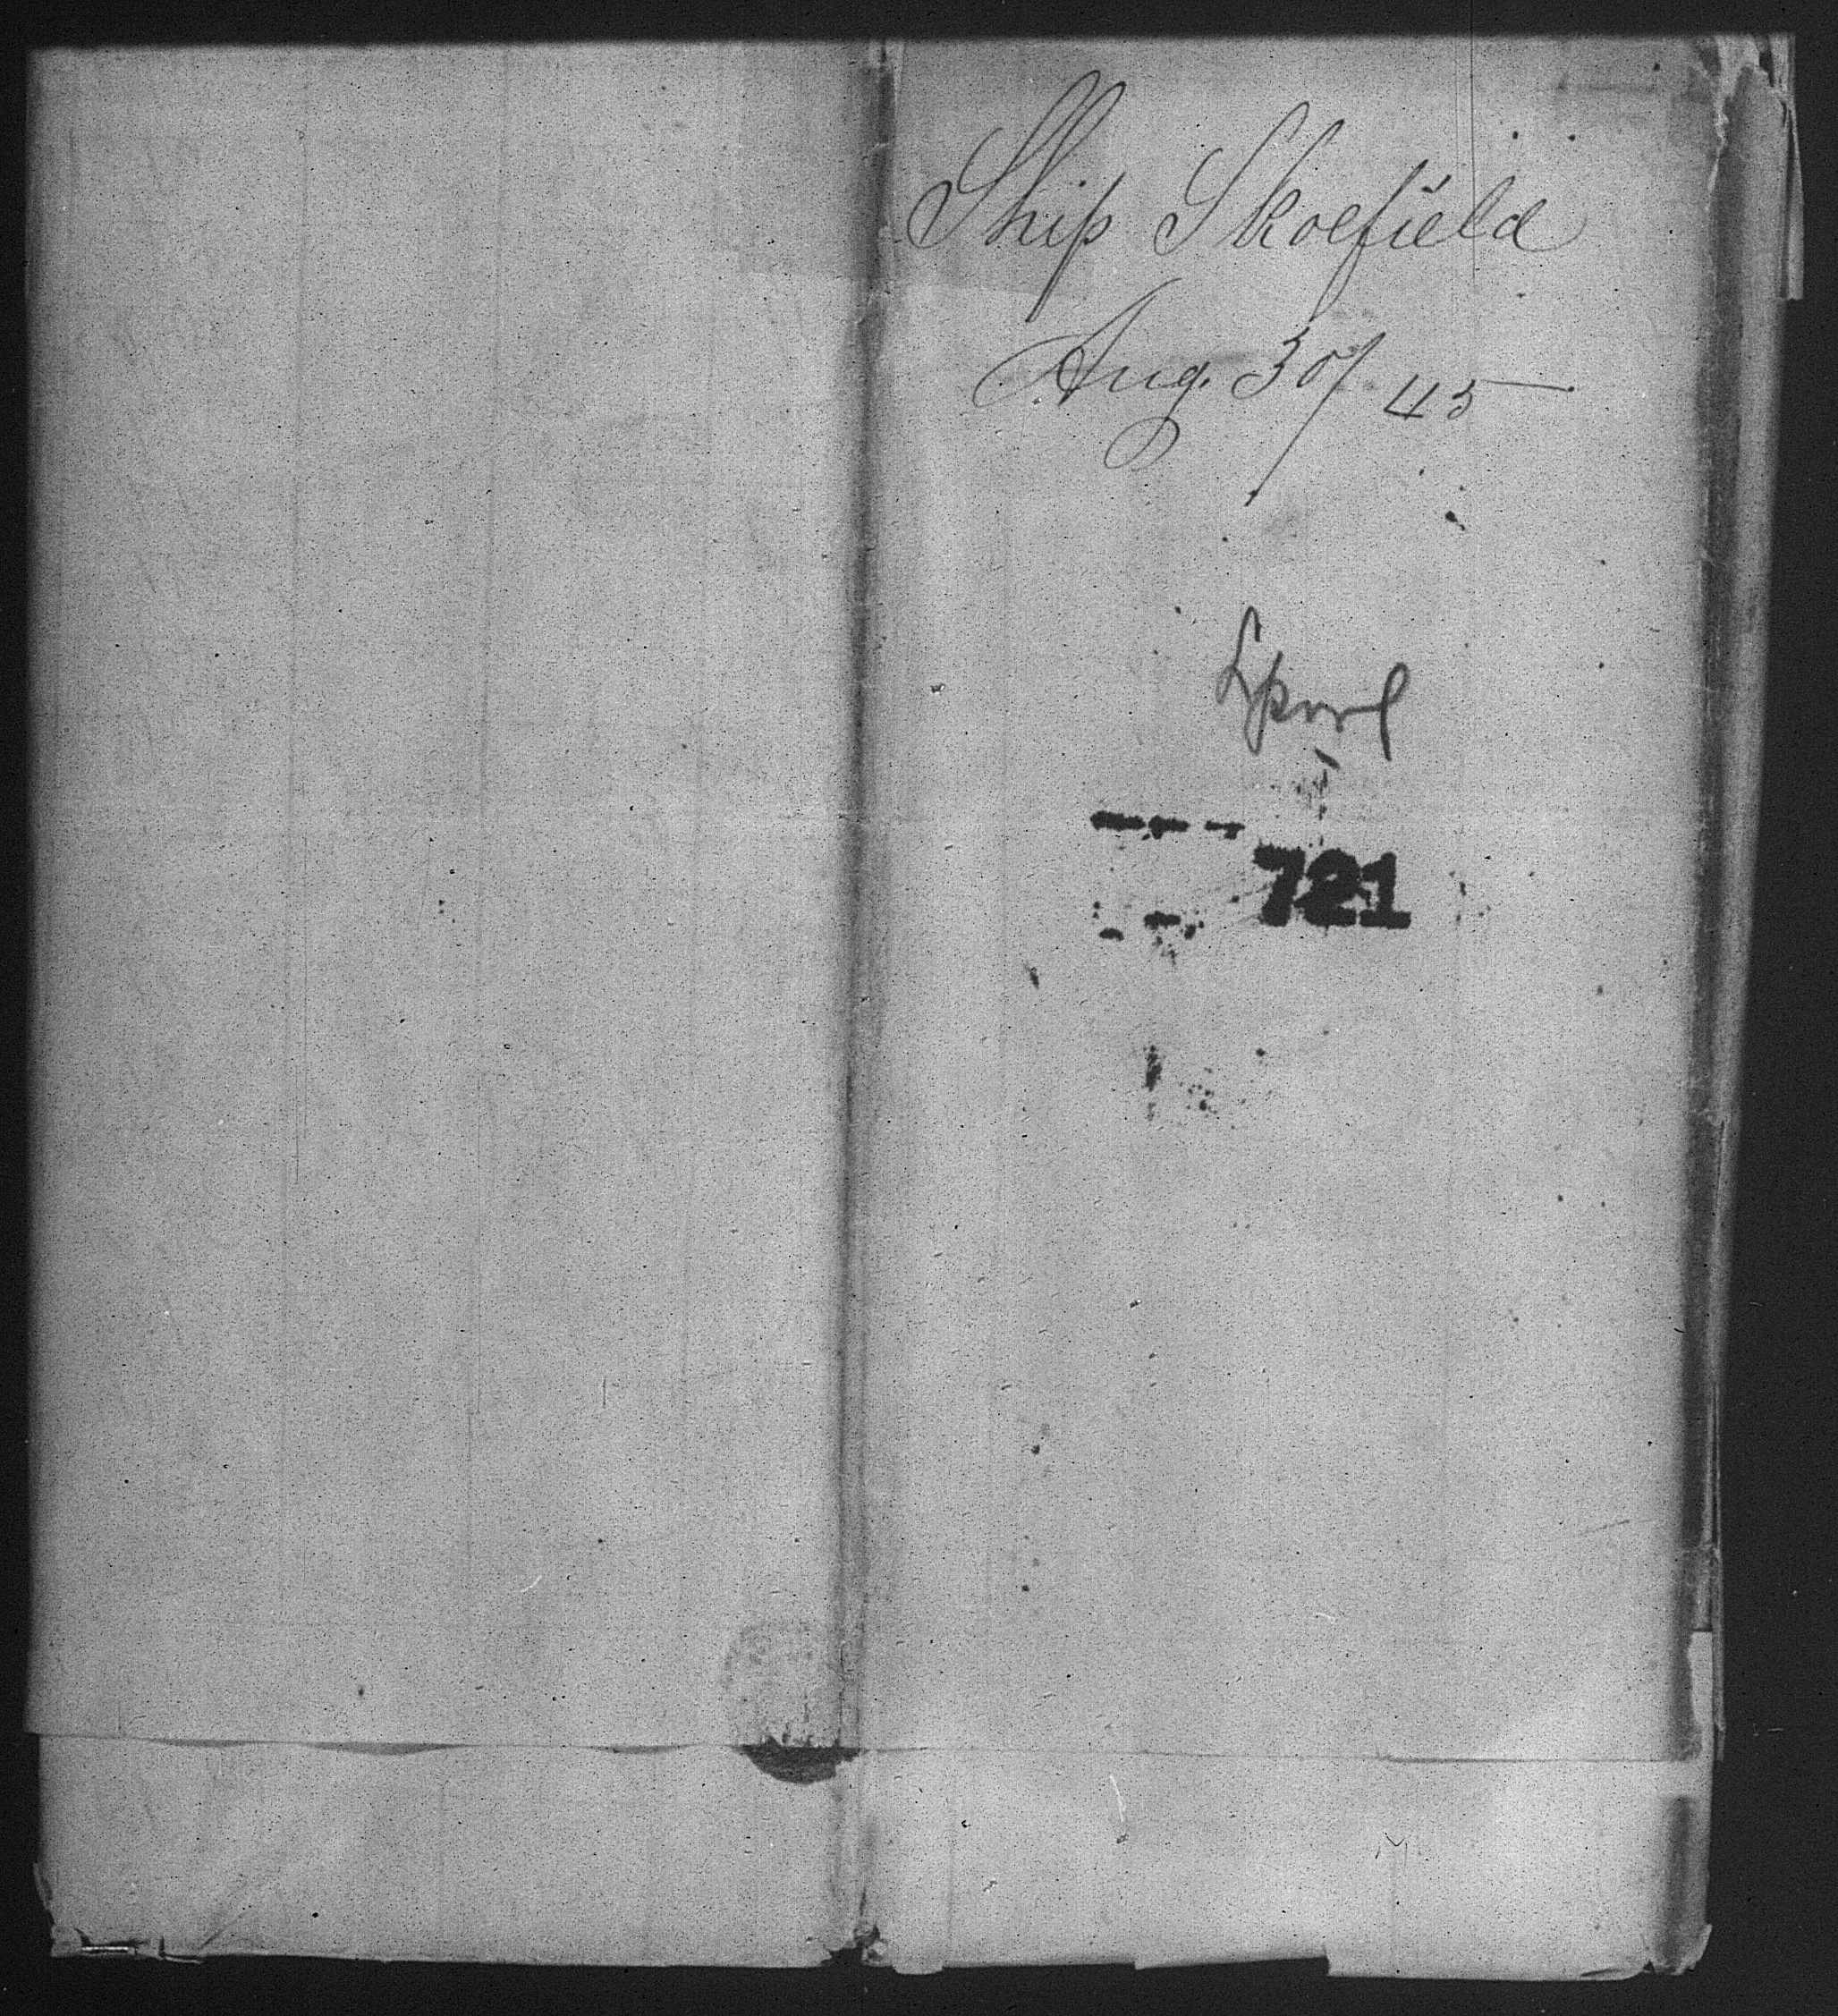 Ship Skolfield
Aug. 30/45
Lpool
721